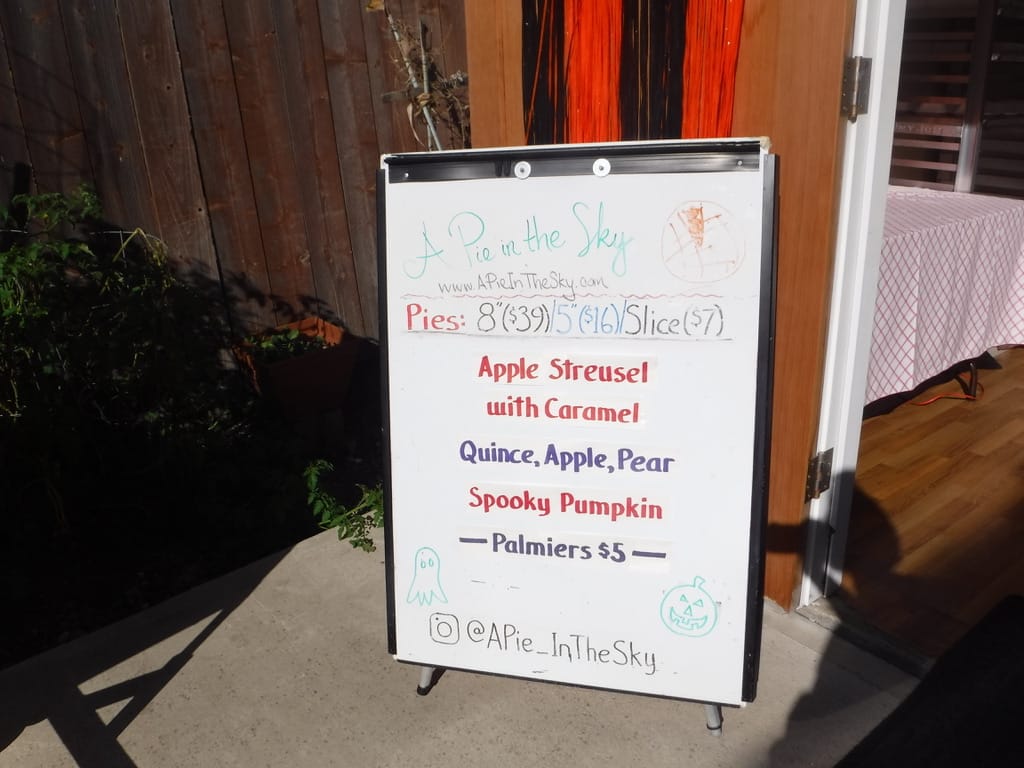 A Pie in the Sky
www.APieInTheSky.com
Pies: 8"($39)/5"($16)/Slice($7)
Apple Streusel
with Caramel
Quince, Apple, Pear
Spooky Pumpkin
— Palmiers $5 —
@APie_InTheSky